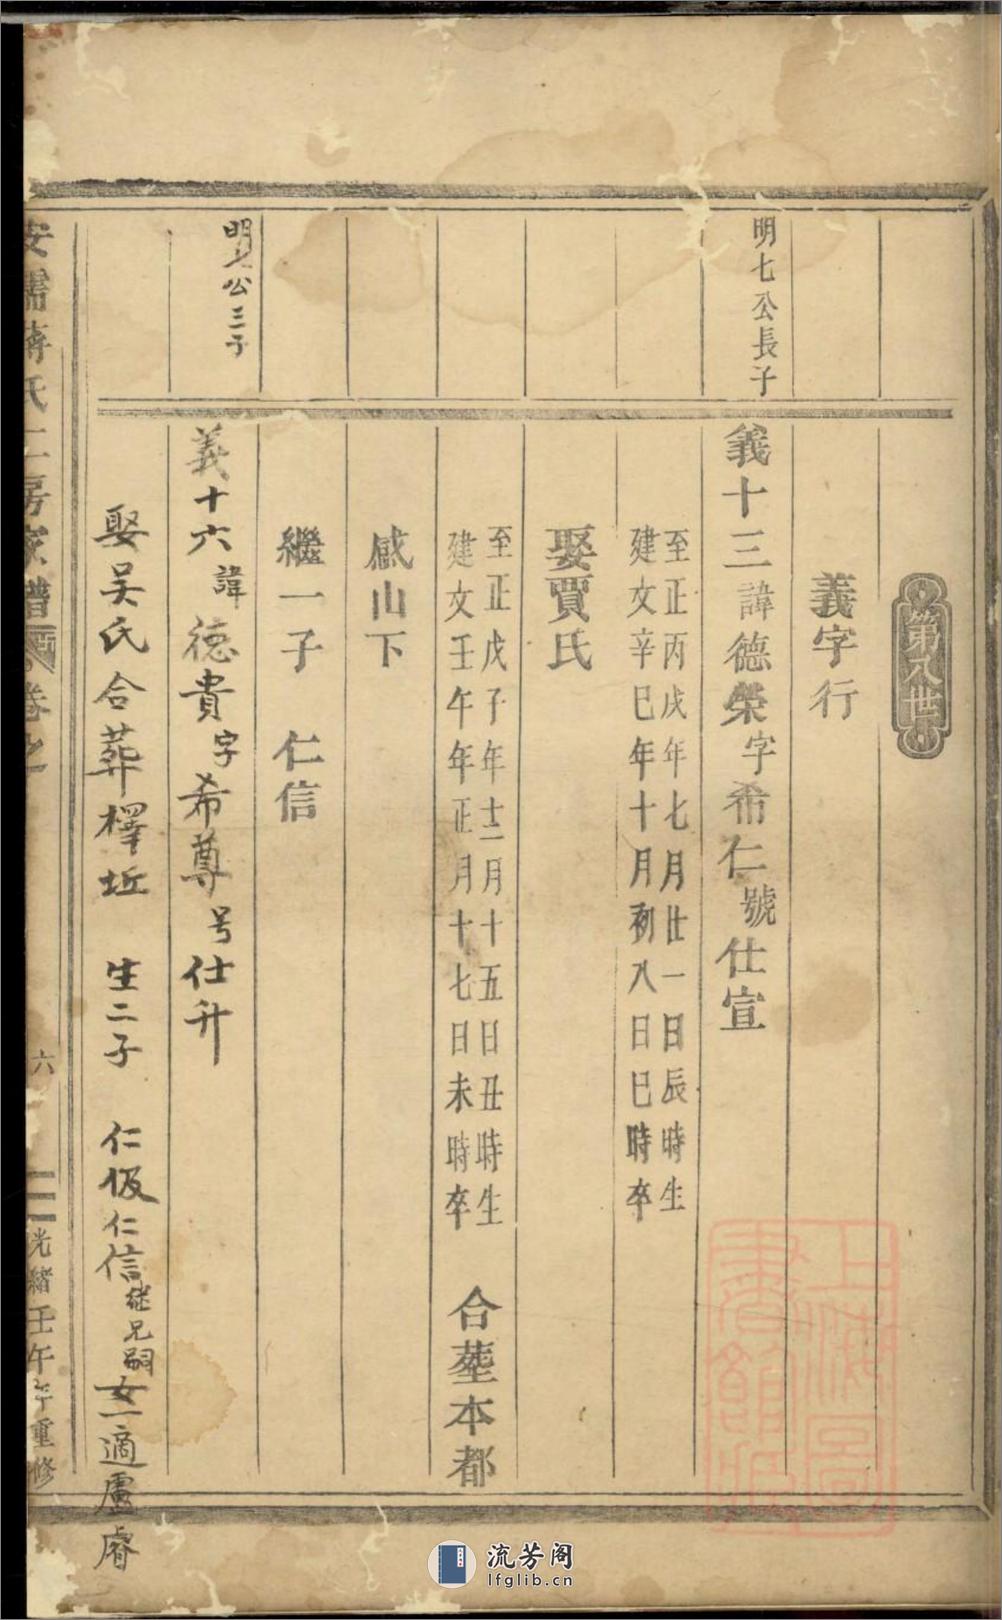 第八世
義字行
明七公長子
義十三諱德榮字希仁號仕宣
至正丙戌年七月廿一日辰時生
建文辛巳年十月初八日巳時卒
娶賈氏
至正戊子年十二月十五日丑時生
建文壬午年正月十七日未時卒
合塟本都
感山下
繼一子 仁信
明七公三子
義十六諱德貴字希尊号仕升
娶吴氏合葬檡坵 生二子 仁伋仁信継兄嗣女一適盧睿
安 蔣氏二房家譜 卷之
六
光緒壬午年重修
上海圖書館藏
流芳阁
lfglib.cn